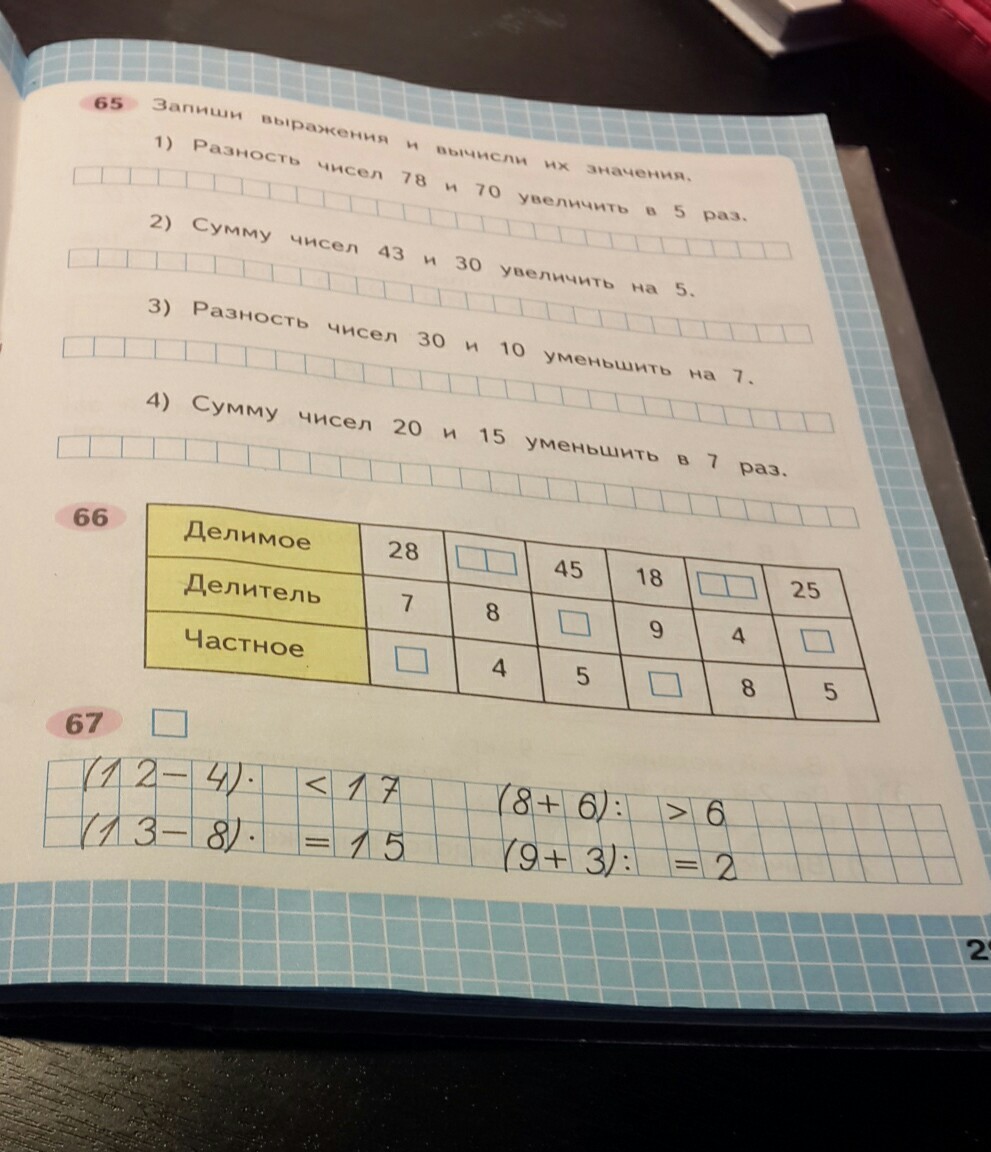 65 Запиши выражения и вычисли их значения.
1) Разность чисел 78 и 70 увеличить в 5 раз.
2) Сумму чисел 43 и 30 увеличить на 5.
3) Разность чисел 30 и 10 уменьшить на 7.
4) Сумму чисел 20 и 15 уменьшить в 7 раз.
66
Делимое 28 45 18 25
Делитель 7 8 9 4
Частное 4 5 8 5
67
(12-4)· <17 (8+6): >6
(13-8)· =15 (9+3): =2